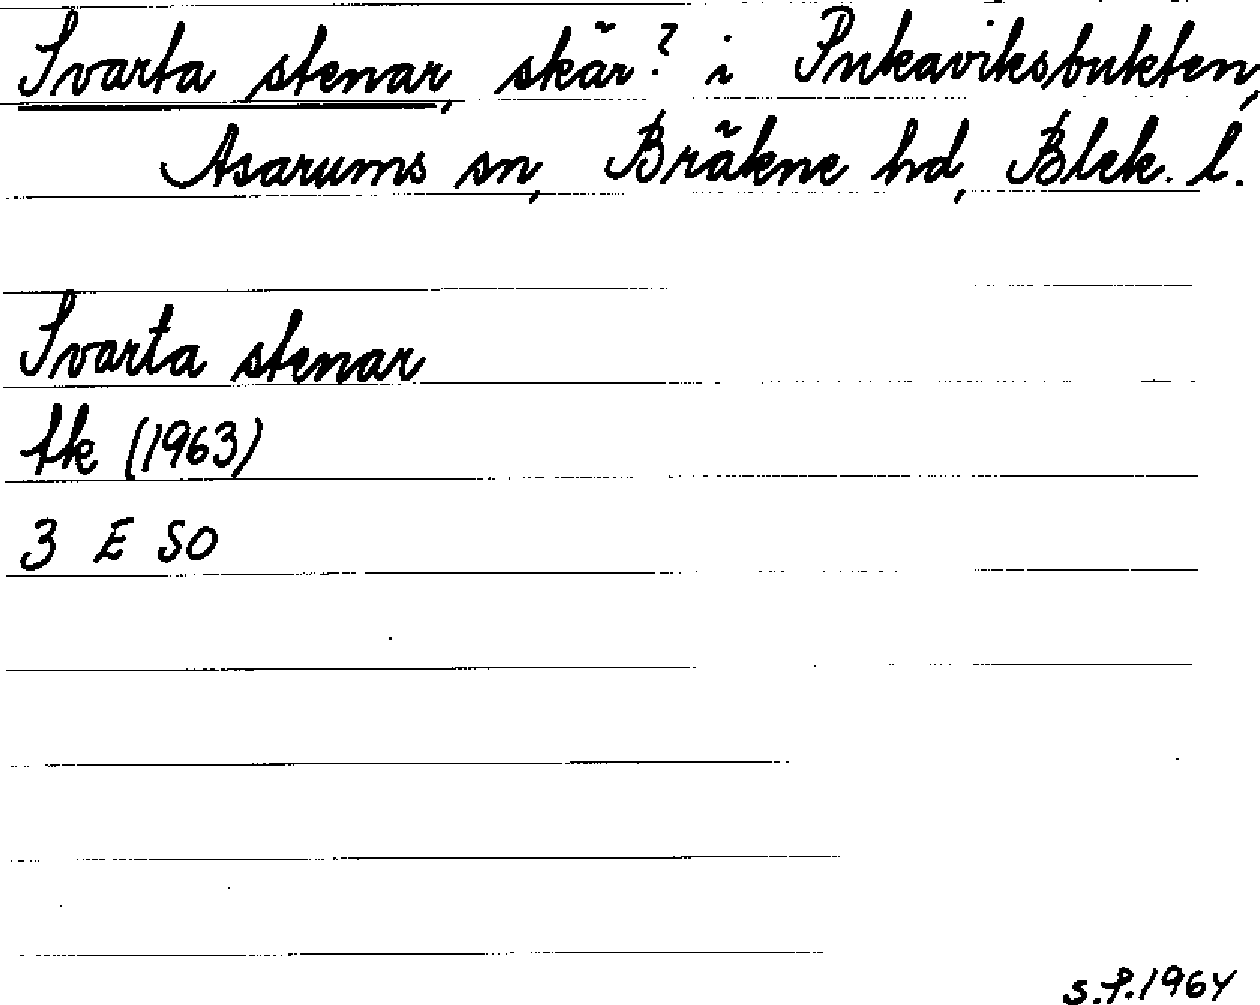 Svarta stenar, skär? i Pukaviksbukten,
Asarums sn, Bräkne hd, Blek. l.
Svarta stenar
fk (1963)
3 E SO
S.P. 1964